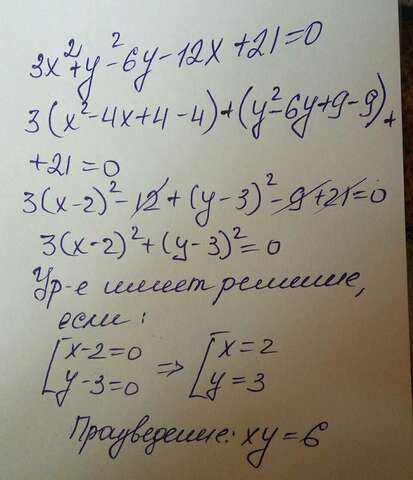 3x²+y²-6y-12x+21=0
3(x²-4x+4-4)+(y²-6y+9-9)+
+21=0
3(x-2)²-12+(y-3)²-9+21=0
3(x-2)²+(y-3)²=0
Ур-е имеет решение,
если:
[x-2=0 => [x=2
[y-3=0 [y=3
Произведение: xy=6